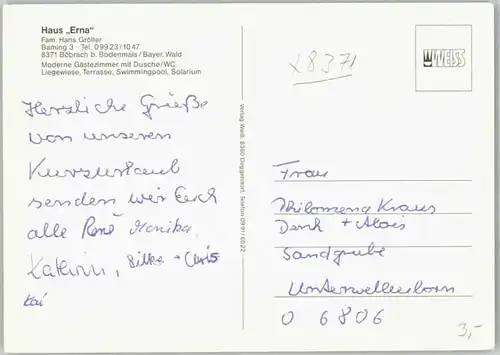 Haus „Erna“
Fam. Hans Gröller
Baming 3 · Tel. 0 99 23 / 10 47
8371 Böbrach b. Bodenmais / Bayer. Wald
Moderne Gästezimmer mit Dusche/WC.
Liegewiese, Terrasse, Swimmingpool, Solarium
Herzliche Grüße
von unserem
Kurzurlaub
senden wir Euch
alle René Monika
Kathrin, Silke + Chris
Kai
Verlag Weiß, 8360 Deggendorf, Telefon 09 91 / 60 22
x 8371
WEISS
Frau
Philomena Kraus
Denk + Alois
Sandgrube
Unterwellenborn
O 6806
3,-